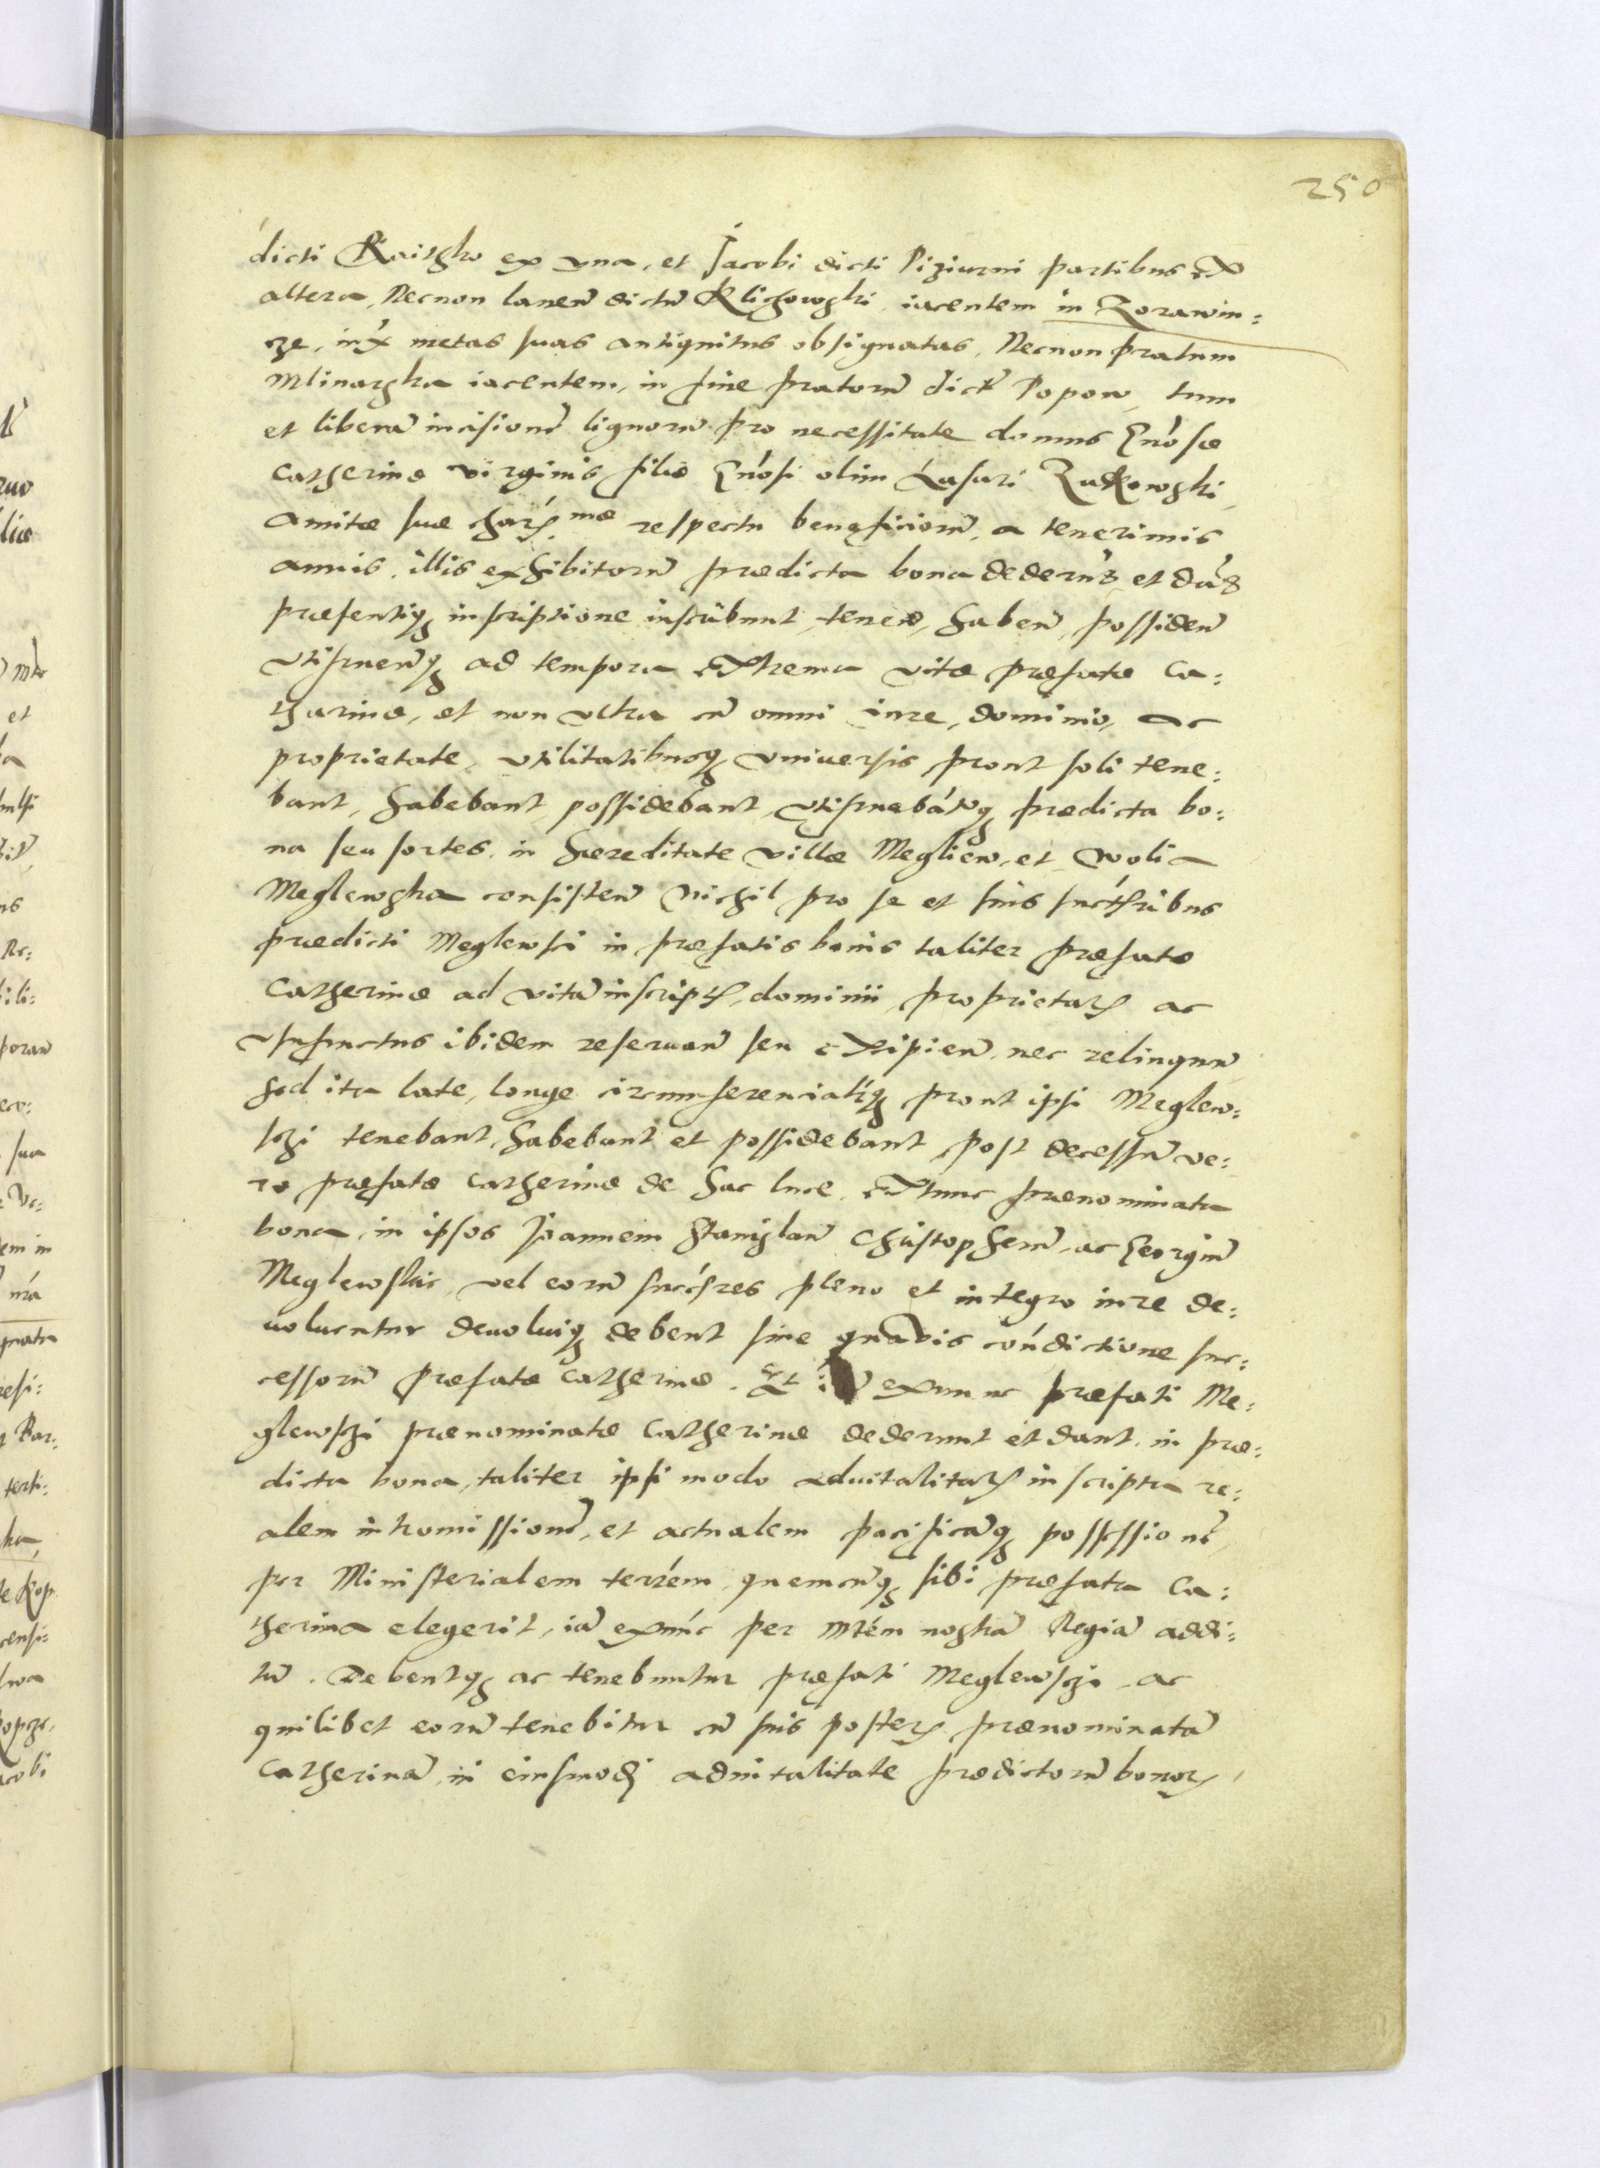 250
dicti Raitzko ex vna, et Jacobi dicti Piziurni partibus ex
altera, Necnon laneũ dictũ Klichowski, iacentem in Zorawin:
cze, intʳ metas suas antiquitus obsignatas, Necnon pratum
Mlinarska iacentem, in fine pratorũ dict Popow, tum
et liberã incisionẽ lignorũ pro necessitate domus Gnõsæ
Catherinæ virginis filiæ Gnõsi olim Lasari Zukowski,
amitæ suæ chariss.mæ respectu beneficiorũ, a tenerimis
annis, illis exhibitorũ prædicta bona dederũt et dãt
præsentiq; inscriptione inscribunt, tenen̄, haben̄, possiden̄
vtifruen̄q; ad tempora extrema vitæ præfatæ Ca:
tharinæ, et non vltra cũ omni iure, dominio, ac
proprietate, vtilitatibusq; vniuersis prout soli tene:
bant, habebant, possidebant, vtifruebãtq; prædicta bo:
na seu sortes, in hæreditate villæ Megliew, et Wolia
Meglewska consisten̄ Nichil pro se et suis succẽsoribus
prædicti Meglewsci in præfatis bonis taliter præfatæ
Catherinæ ad vitã inscriptis, dominii, proprietatis ac
vsufructus ibidem reseruan̄ seu excipien̄, nec relinquen̄
sed ita late, longe circumferencialitq; prout ipsi Meglew:
sczi tenebant, habebant et possidebant, post decessũ ve:
ro præfatæ Catherinæ de hac luce, extunc prænominata
bona, in ipsos Joannem Stanislaũ Christopherũ, ac Georgiũ
Meglewskie, vel eorũ succẽsores pleno et integro iure de:
uoluentur deuoluiq; debent sine quavis cõndictione suc:
cessorũ præfatæ Catherinæ. Et exnunc præfati Me:
glewsczi prænominatæ Catherinæ dederunt et dant, in præ:
dicta bona, taliter ipsi modo aduitalitatis inscripta re:
alem intromissionẽ, et actualem pacificãq; possessionẽ,
per Ministerialem terrẽm, quemcũq; sibi præfata Ca:
therina elegerit, iã exnũc per Mtẽm nostrã Regiã addi:
tũ. Debentq; ac tenebuntur præfati Meglewsczi, ac
quilibet eorũ tenebitur cũ suis posteris prænominatã
Catherinã, in eiusmodi aduitalitate prædictorũ bonor̃